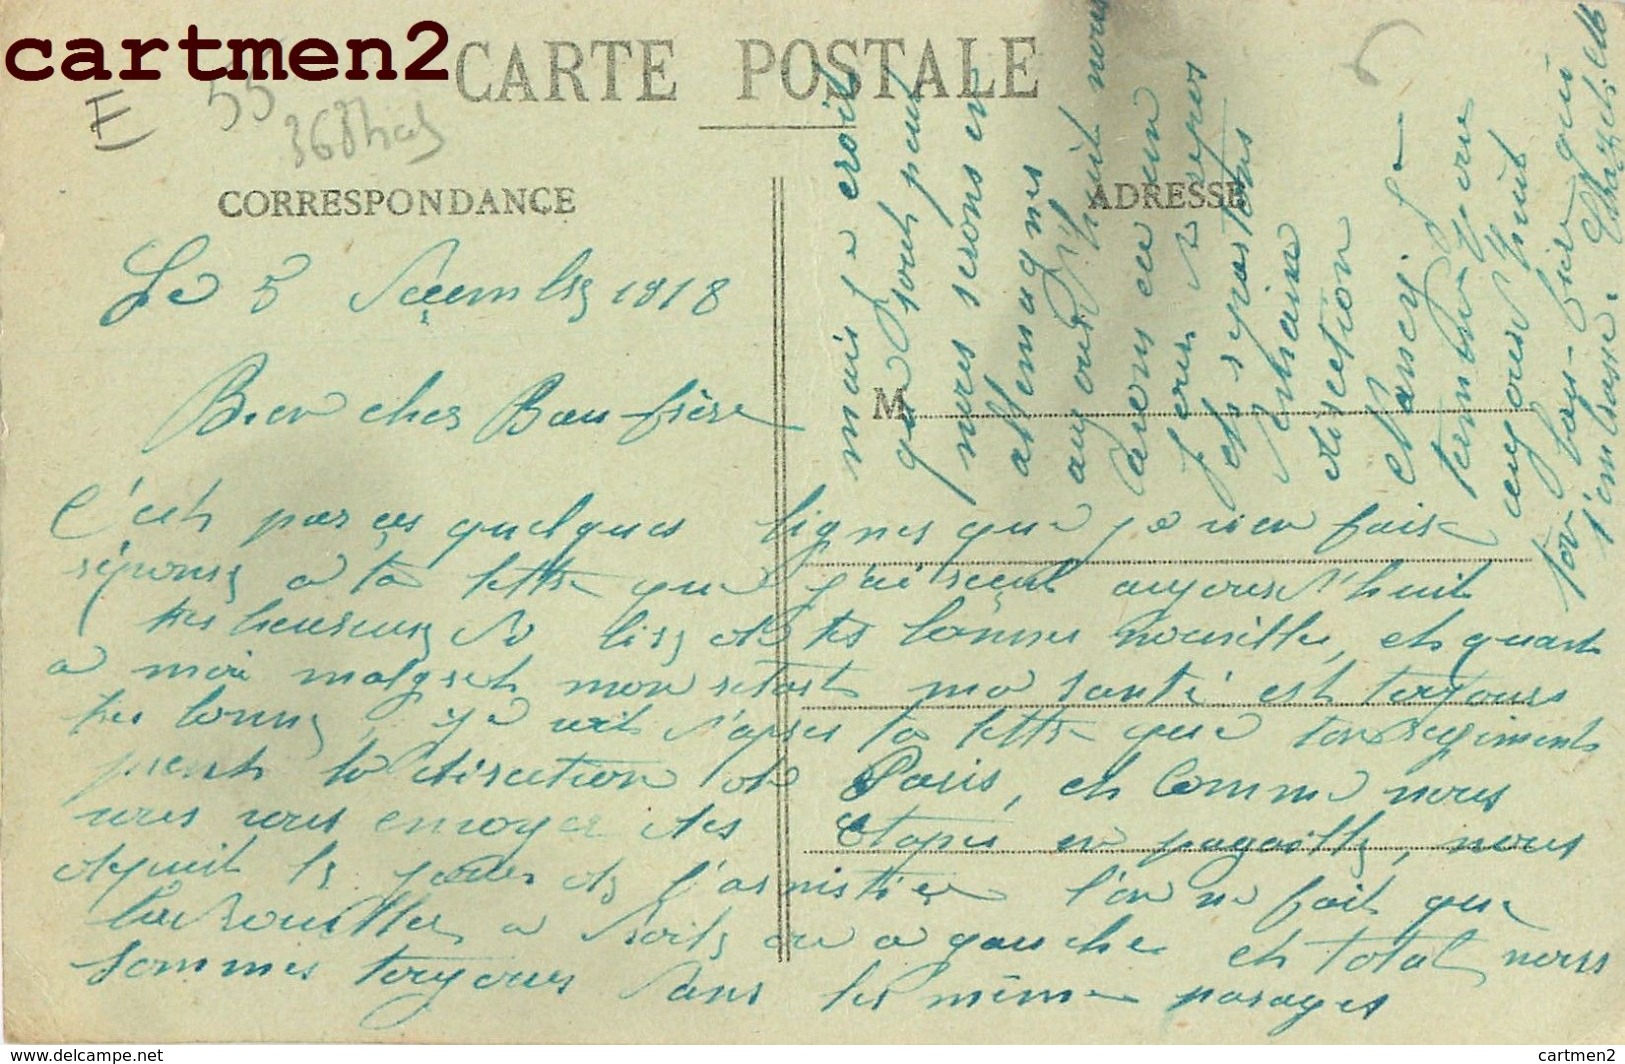 cartmen2
CARTE POSTALE
E 55
CORRESPONDANCE
ADRESSE
M
Le 5 Décembre 1918
Bien cher Beau-frère
C'est par ces quelques lignes que je vien faire
réponse a ta lettre que j'ai recut aujours d'huit
tres heureux de lire de tes bonnes nouvelles, et quant
a moi malgret mon retart ma santé est toujours
tres bonne, je voit d'apres ta lettre que ton regiments
prent la direction de Paris, et comme nous
nous nous envoyer des Etapes en pagaille, nous
depuit le jours de l'armistice l'on ne fait que
a droite ou a gauche et total nous
sommes toujours dans les même parages
mais je croit
que sout peut
nous serons en
allemagne
aujourd'huit nous
avons eu un
jour de repos
et repartons
demain
direction
Nancy. Je
termine pour
aujours d'huit
ton beau-frère qui
t'embrasse.
www.delcampe.net
cartmen2